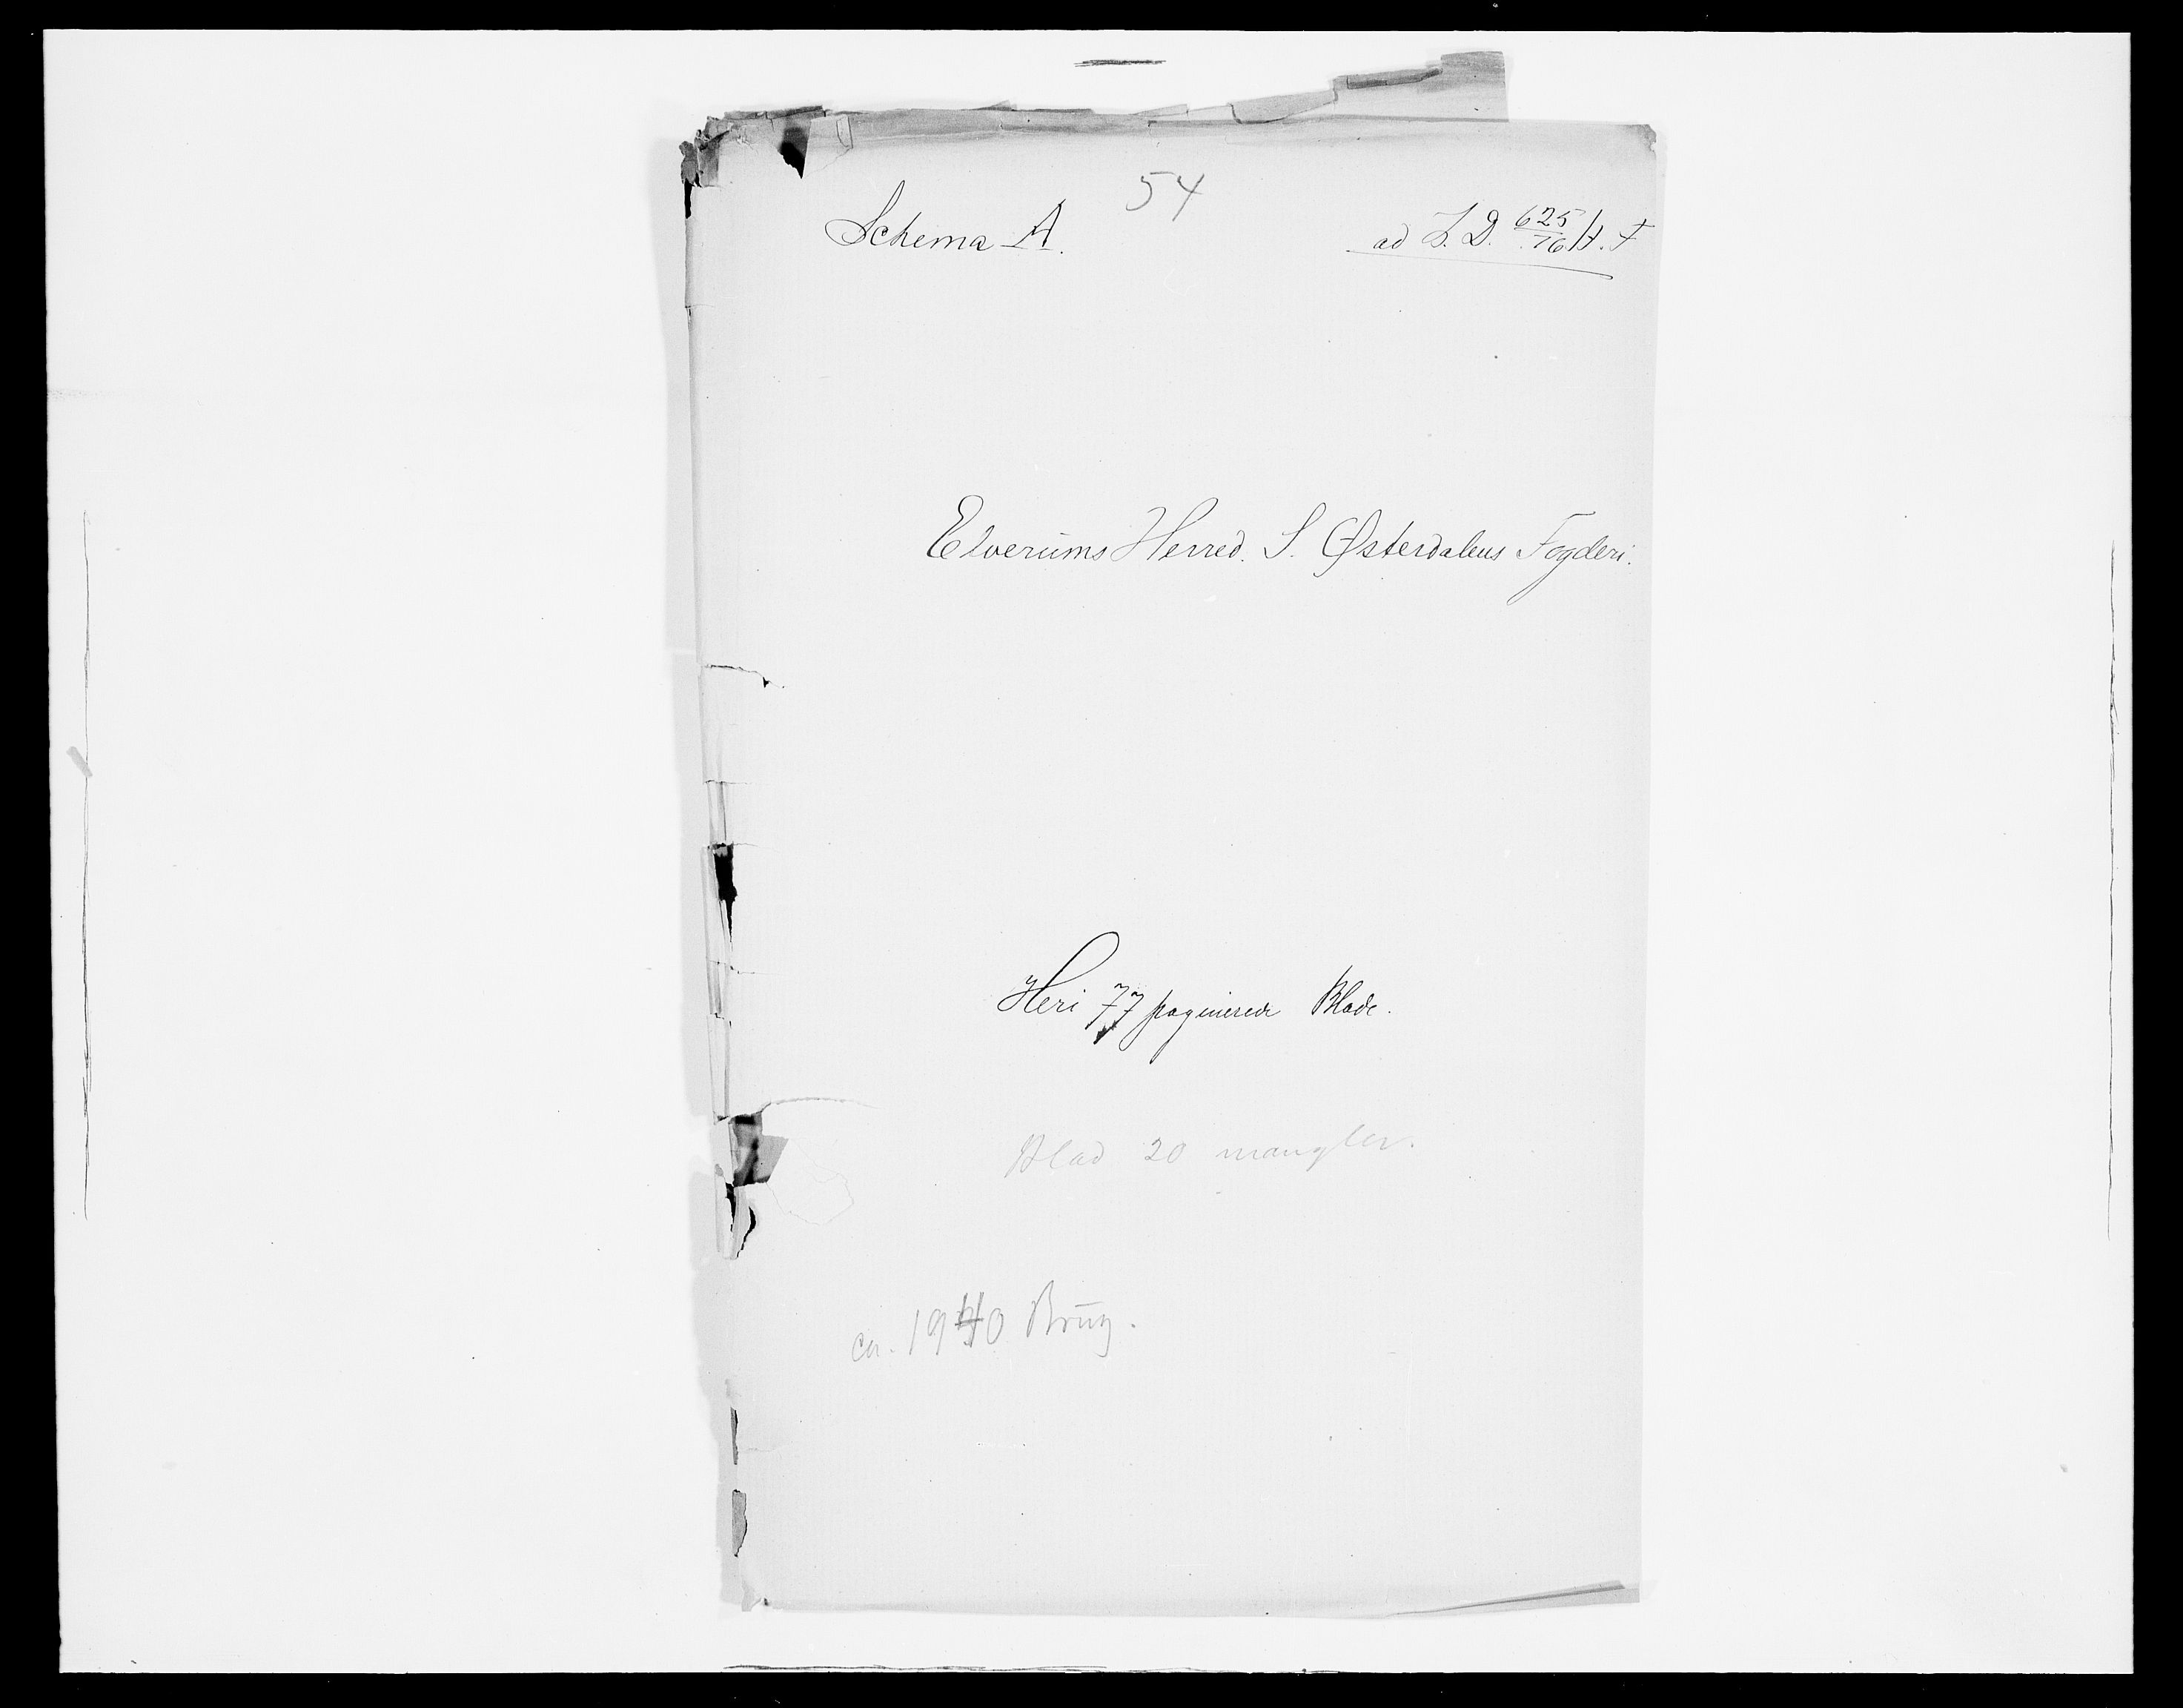 54
Schema A.
ad J. D. 625/76 H. F
Elverums Herred. S. Østerdalens Fogderi.
Heri 77 paginerede Blade.
Blad 20 mangler.
ca. 1940 Brug.